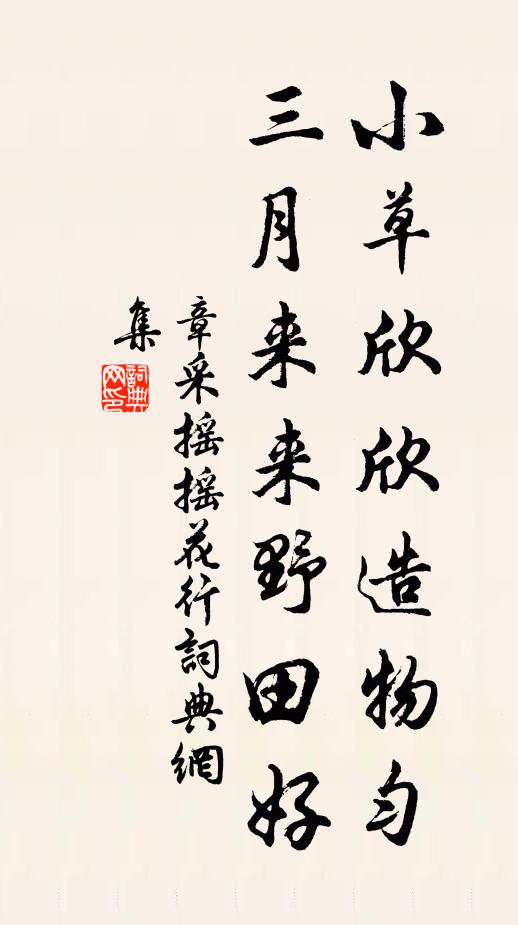 小草欣欣造物匀
三月来来野田好
章采摇摇花行詞典網
集
詞典網印